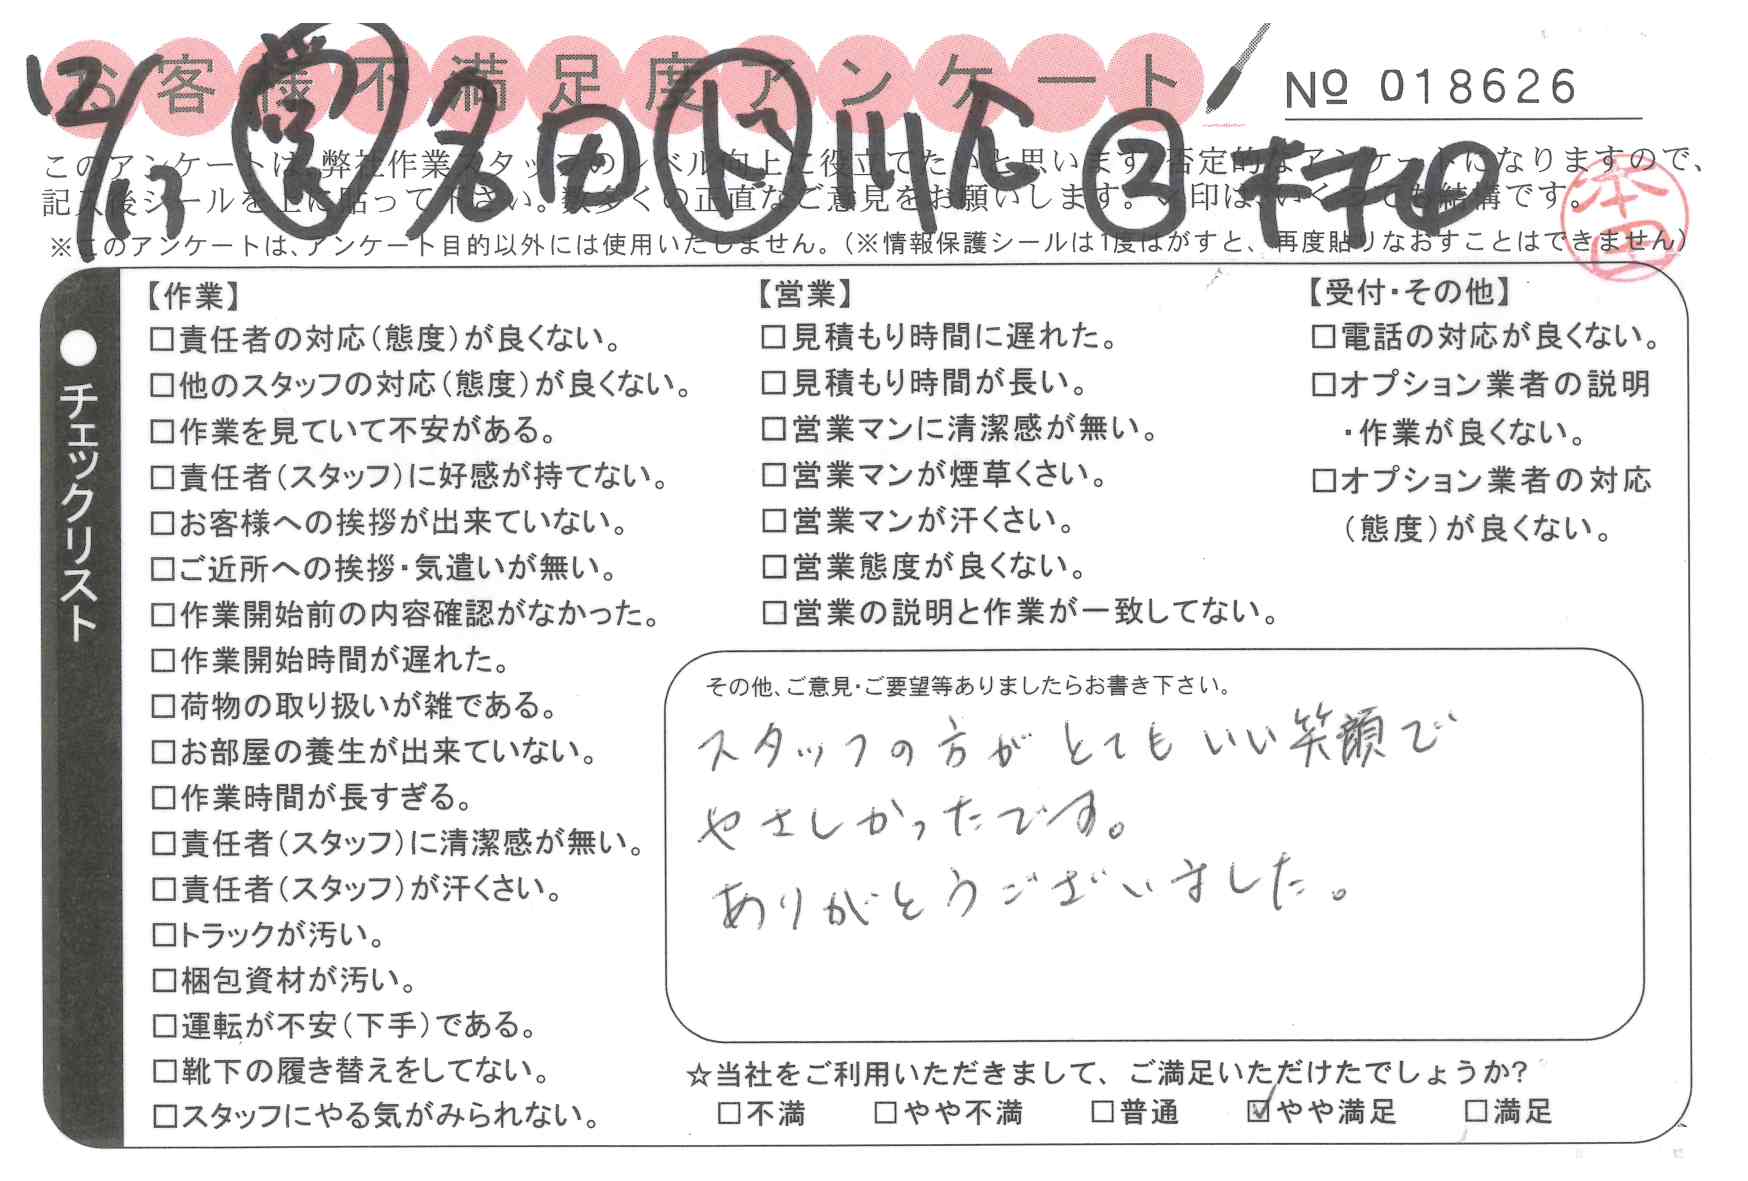 お客様不満足度アンケート
№ 018626
12/13 営 名田 ド 川
このアンケートは、弊社作業スタッフのレベル向上に役立てたいと思います。否定的なアンケートになりますので、
記入後シールを上に貼って下さい。数多くの正直なご意見をお願いします。✓印は、いくつでも結構です。
本田
※このアンケートは、アンケート目的以外には使用いたしません。(※情報保護シールは1度はがすと、再度貼りなおすことはできません)
●チェックリスト
【作業】
□責任者の対応(態度)が良くない。
□他のスタッフの対応(態度)が良くない。
□作業を見ていて不安がある。
□責任者(スタッフ)に好感が持てない。
□お客様への挨拶が出来ていない。
□ご近所への挨拶・気遣いが無い。
□作業開始前の内容確認がなかった。
□作業開始時間が遅れた。
□荷物の取り扱いが雑である。
□お部屋の養生が出来ていない。
□作業時間が長すぎる。
□責任者(スタッフ)に清潔感が無い。
□責任者(スタッフ)が汗くさい。
□トラックが汚い。
□梱包資材が汚い。
□運転が不安(下手)である。
□靴下の履き替えをしてない。
□スタッフにやる気がみられない。
【営業】
□見積もり時間に遅れた。
□見積もり時間が長い。
□営業マンに清潔感が無い。
□営業マンが煙草くさい。
□営業マンが汗くさい。
□営業態度が良くない。
□営業の説明と作業が一致してない。
【受付・その他】
□電話の対応が良くない。
□オプション業者の説明
・作業が良くない。
□オプション業者の対応
(態度)が良くない。
その他、ご意見・ご要望等ありましたらお書き下さい。
スタッフの方がとてもいい笑顔で
やさしかったです。
ありがとうございました。
☆当社をご利用いただきまして、ご満足いただけたでしょうか?
□不満 □やや不満 □普通 ☑やや満足 □満足